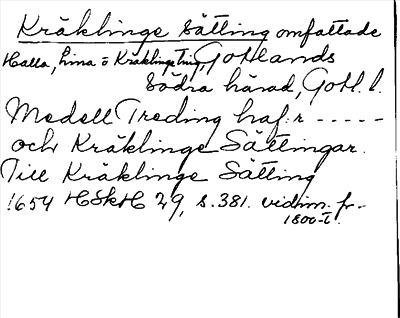 Kräklinge sätting omfattade
Halla, Lina o Kräklinge Ting, Gotlands
Södra härad, Gotl. l.
Medell Treding haf:r - - - - -
och Kräklinge Sättingar.
Till Kräklinge Sätting
1654 HSkH 29, s. 381. vidim. fr.
1800-t.